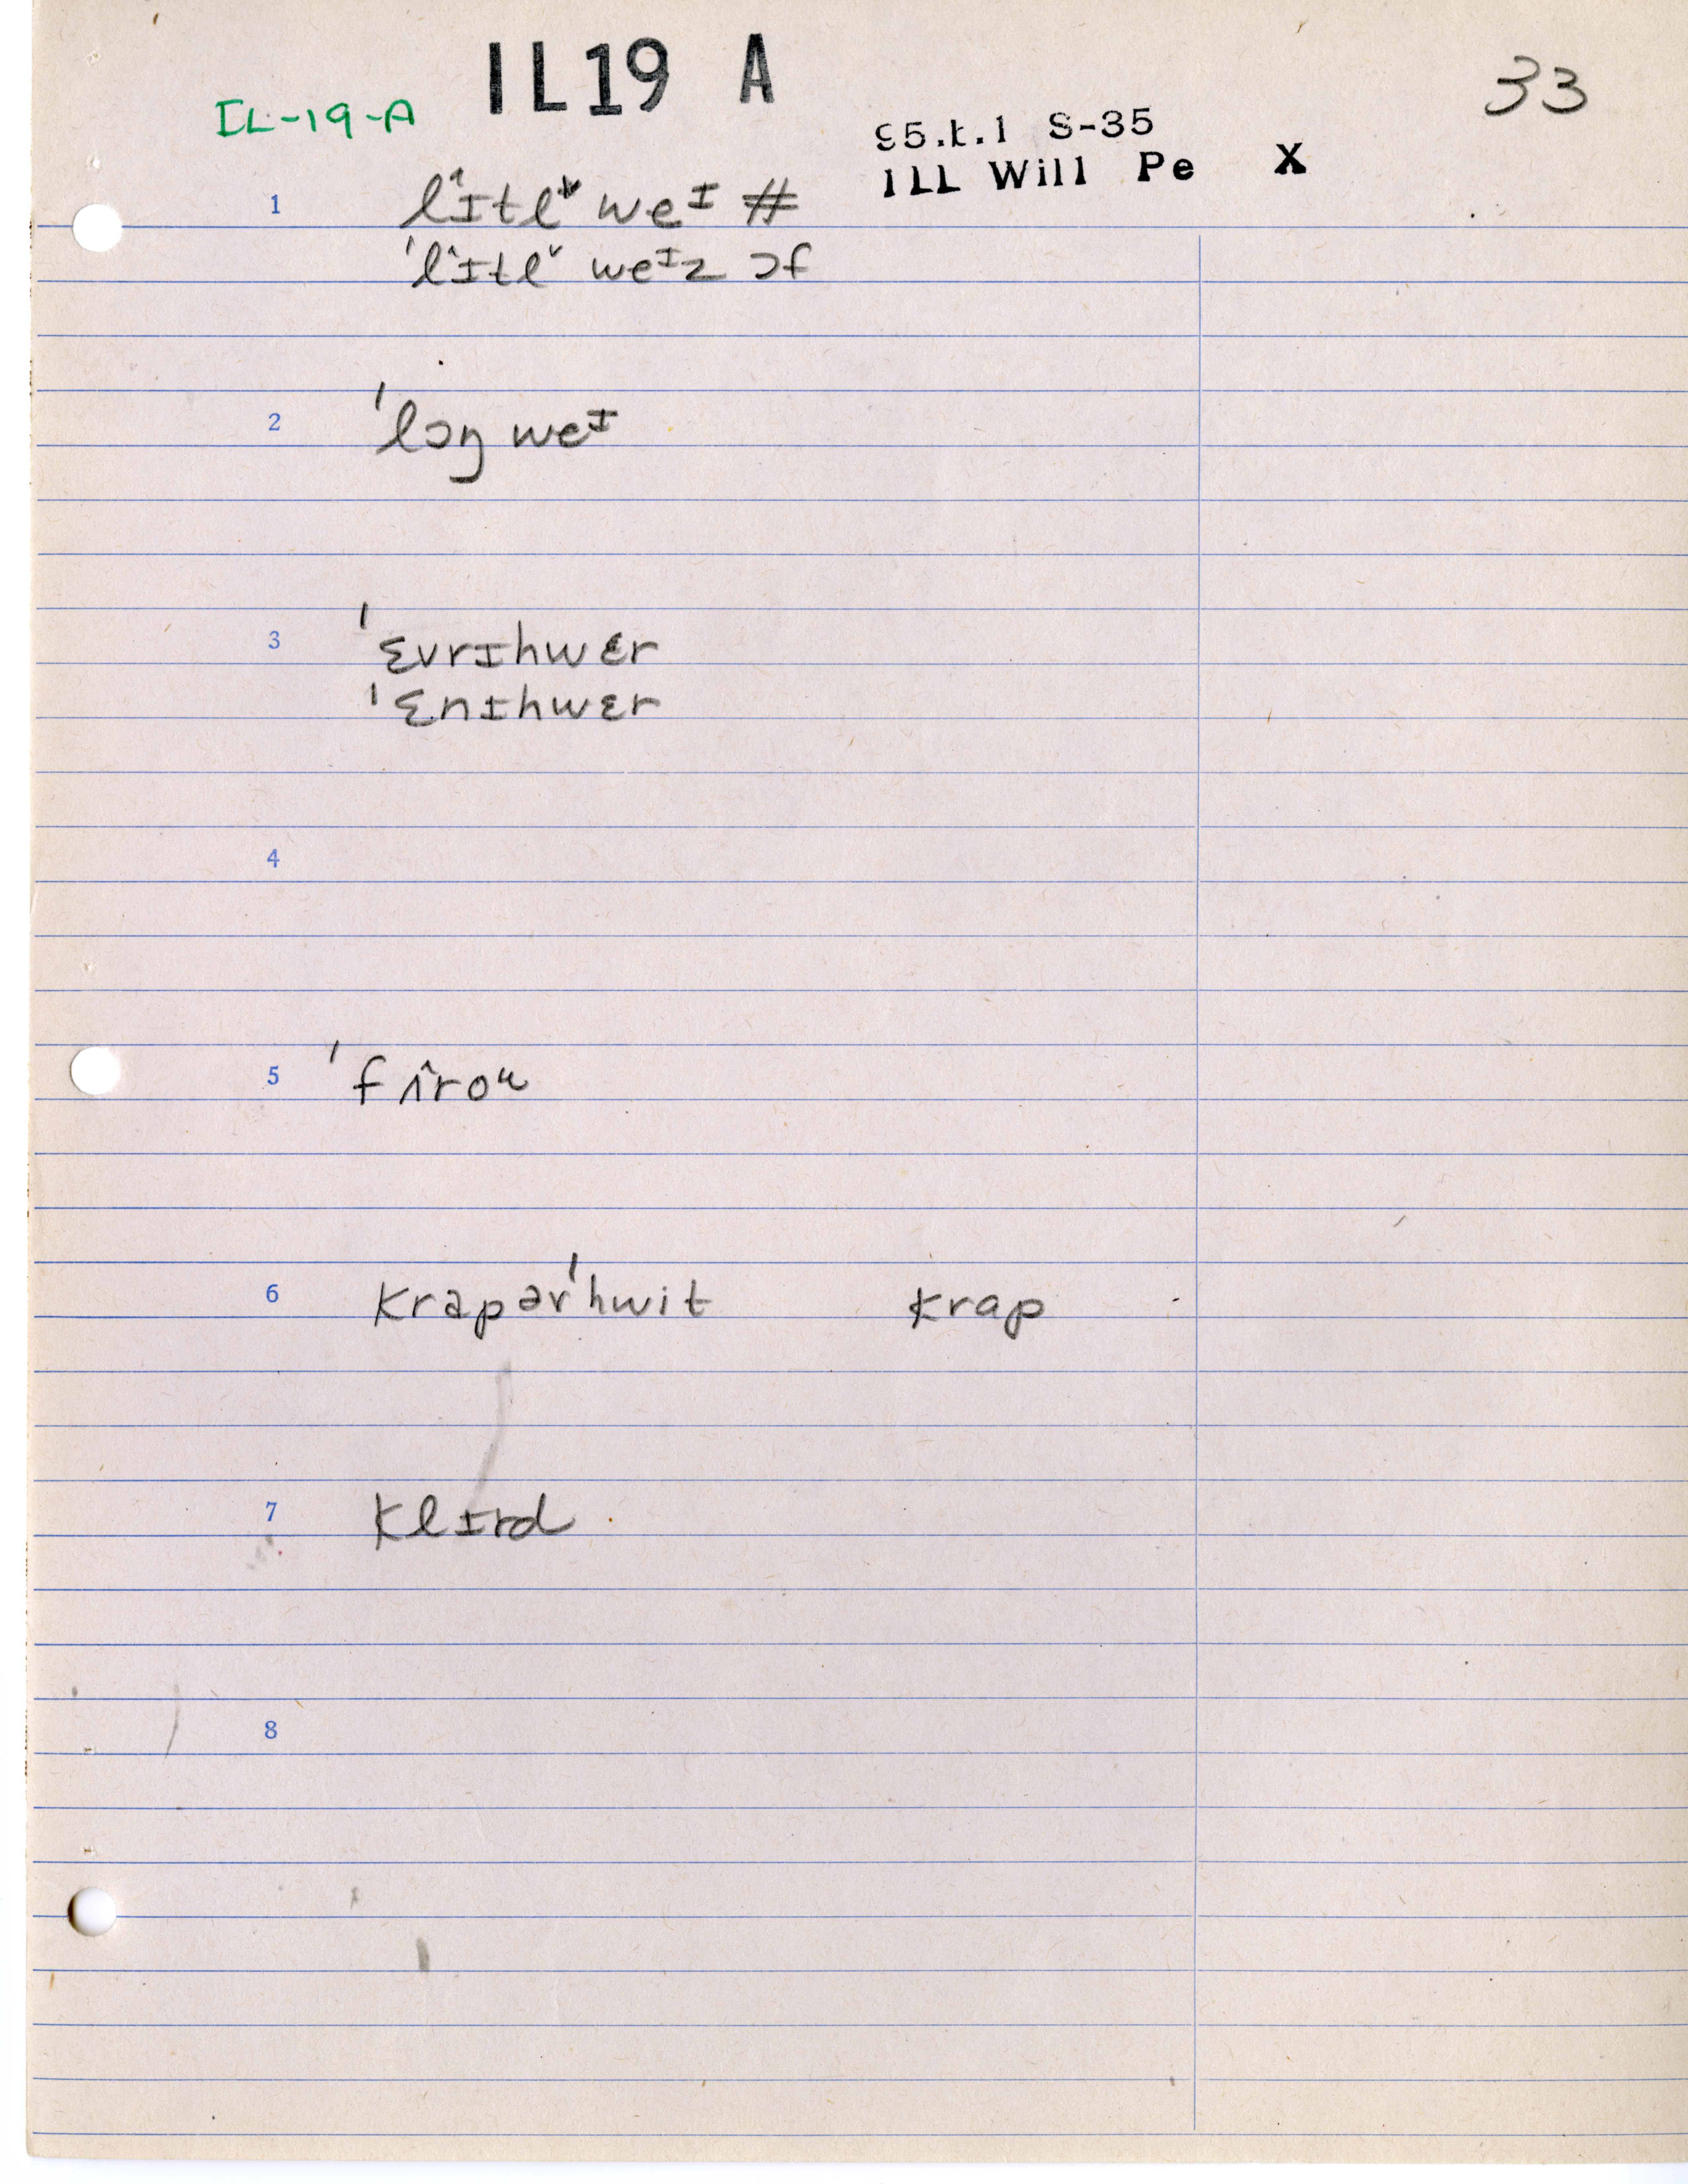 IL19 A
33
IL-19-A
95.k.1 S-35
ILL Will Pe X
1 lɪ̂tl̬ weᶦ #
'lɪ̂tl̬ weᶦz ɔf
2 'lɔŋ weᶦ
3 'ɛvrɪhwɛr
'ɛnɪhwɛr
4
5 'fʌ̂roᵘ
6 krapər'hwit krap
7 klɪrd
8